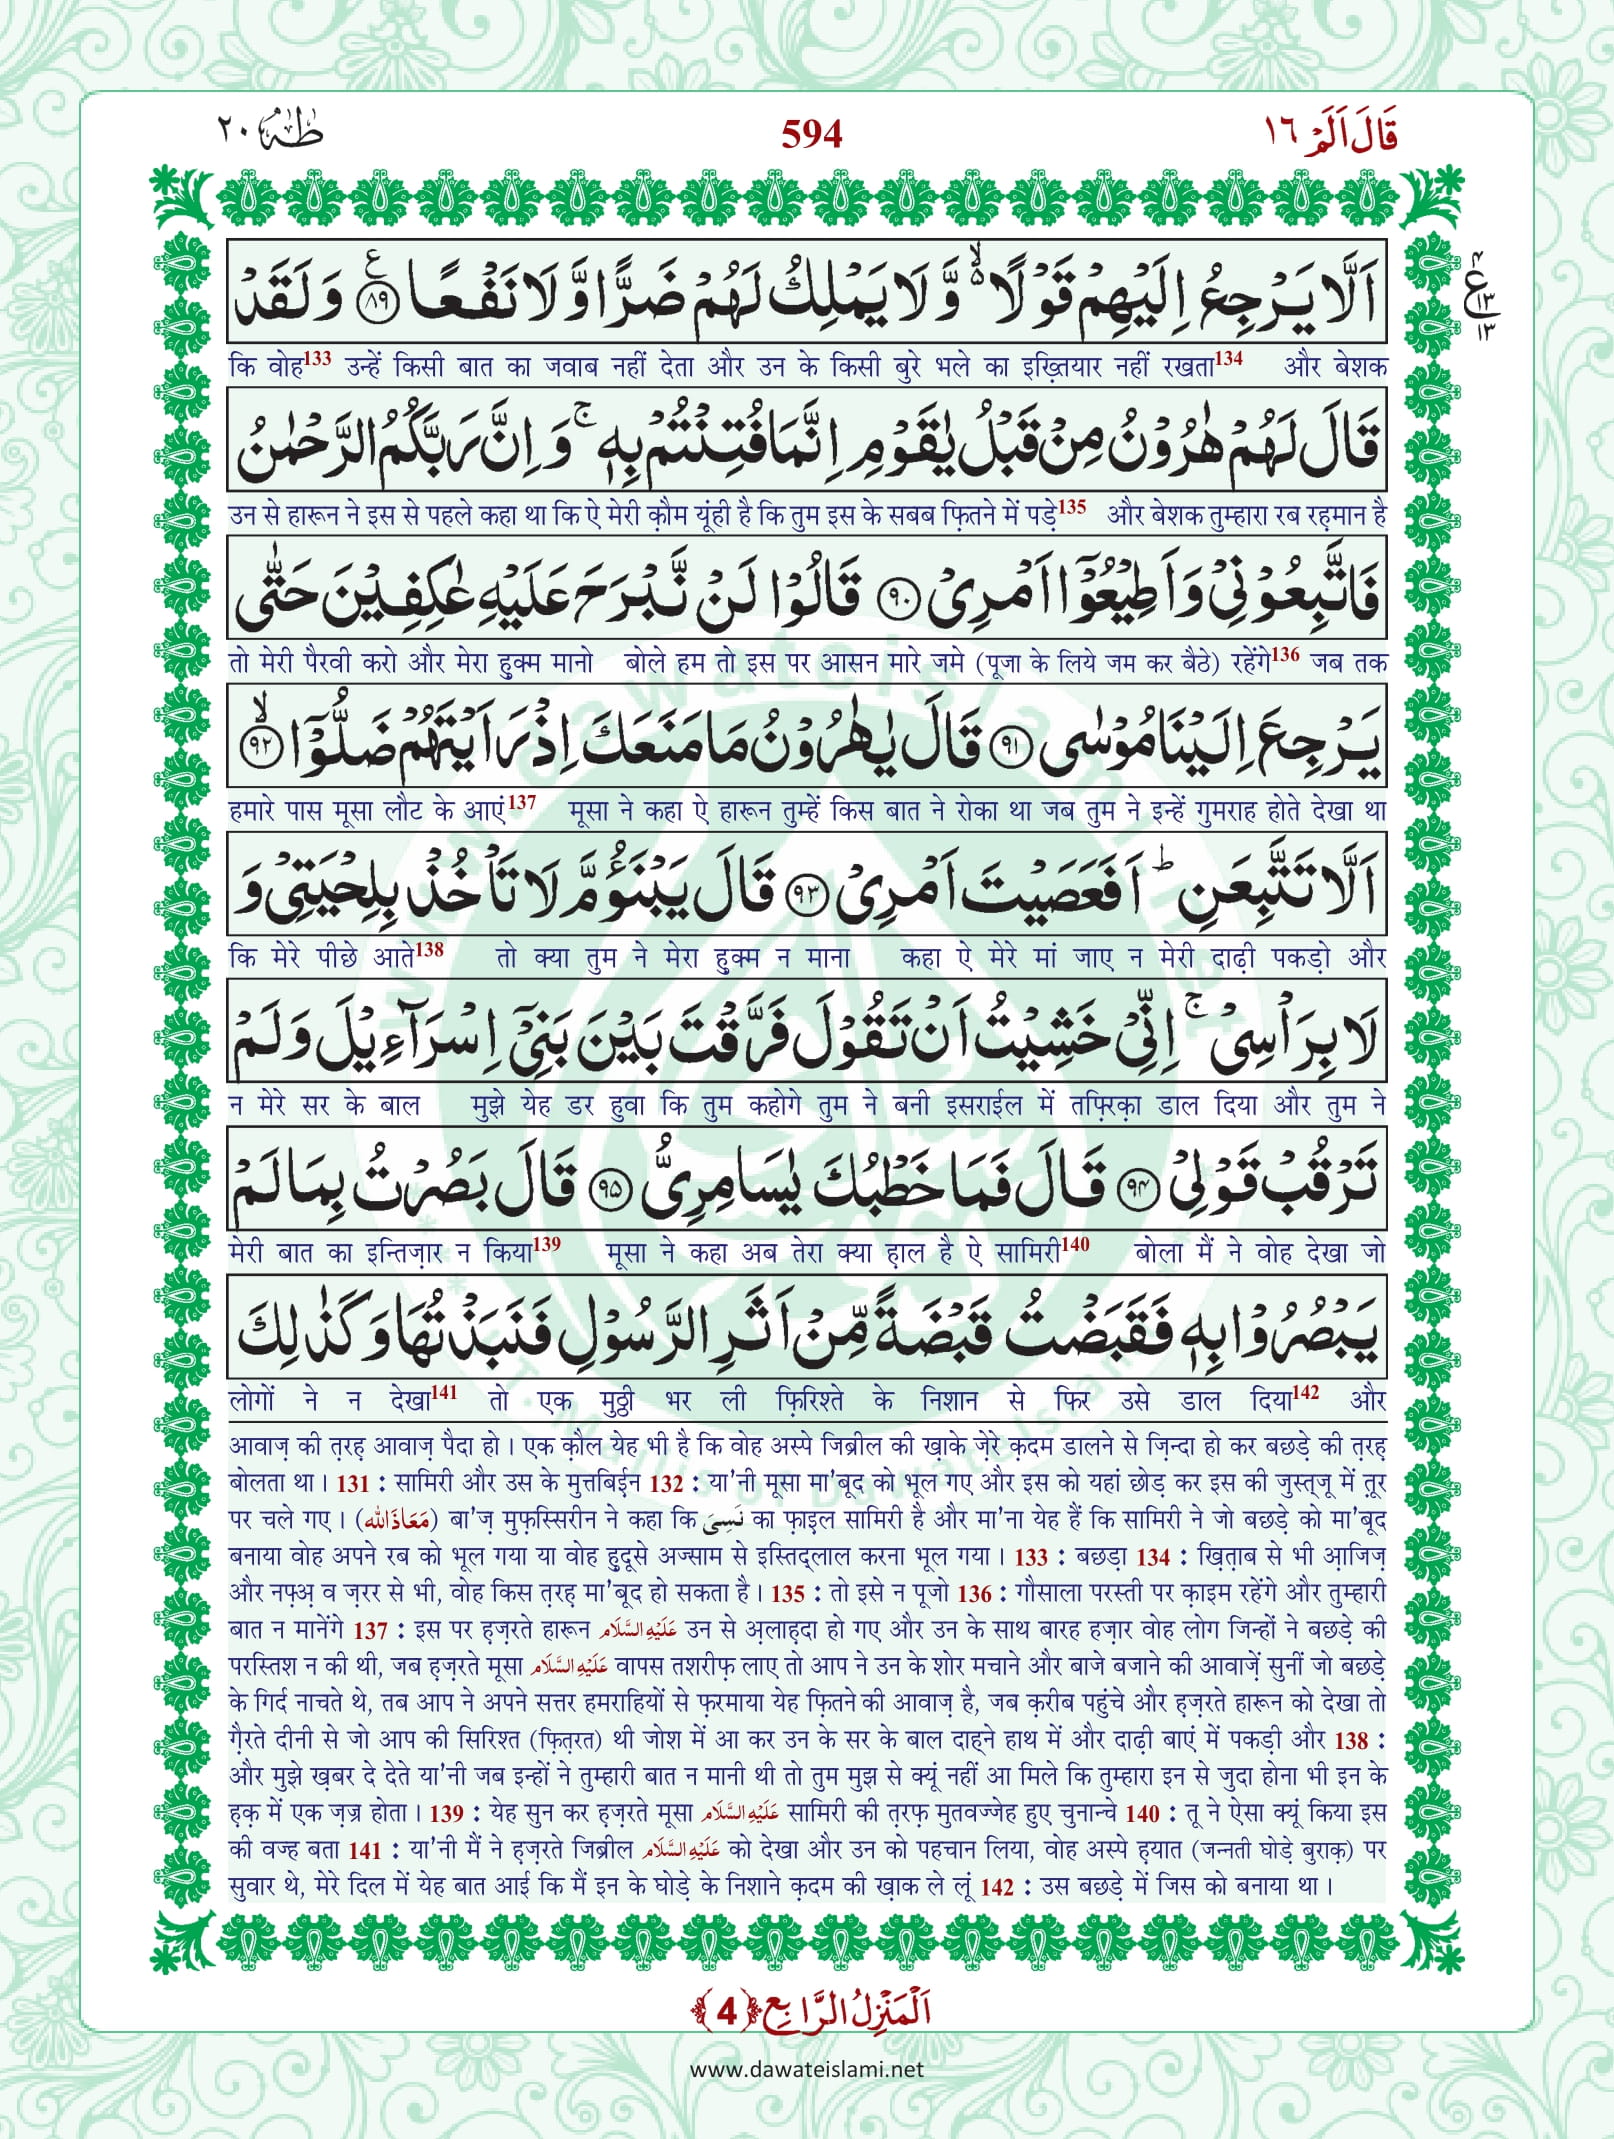 قَالَ اَلَمۡ ١٦
594
طٰهٰ ٢٠
اَلَّا يَرۡجِعُ اِلَيۡهِمۡ قَوۡلًا ۬ۙ وَّ لَا يَمۡلِكُ لَهُمۡ ضَرًّا وَّ لَا نَفۡعًا ﴿٨٩﴾ ع وَ لَقَدۡ
ع ٤ ١٣ ١٣
कि वोह133 उन्हें किसी बात का जवाब नहीं देता और उन के किसी बुरे भले का इख़्तियार नहीं रखता134 और बेशक
قَالَ لَهُمۡ هٰرُوۡنُ مِنۡ قَبۡلُ يٰقَوۡمِ اِنَّمَا فُتِنۡتُمۡ بِهٖ ۚ وَ اِنَّ رَبَّكُمُ الرَّحۡمٰنُ
उन से हारून ने इस से पहले कहा था कि ऐ मेरी क़ौम यूंही है कि तुम इस के सबब फ़ितने में पड़े135 और बेशक तुम्हारा रब रह़मान है
فَاتَّبِعُوۡنِيۡ وَ اَطِيۡعُوۡۤا اَمۡرِيۡ ﴿٩٠﴾ قَالُوۡا لَنۡ نَّبۡرَحَ عَلَيۡهِ عٰكِفِيۡنَ حَتّٰى
तो मेरी पैरवी करो और मेरा हुक्म मानो बोले हम तो इस पर आसन मारे जमे (पूजा के लिये जम कर बैठे) रहेंगे136 जब तक
يَرۡجِعَ اِلَيۡنَا مُوۡسٰى ﴿٩١﴾ قَالَ يٰهٰرُوۡنُ مَا مَنَعَكَ اِذۡ رَاَيۡتَهُمۡ ضَلُّوۡۤا ﴿٩٢﴾ ۙ
हमारे पास मूसा लौट के आएं137 मूसा ने कहा ऐ हारून तुम्हें किस बात ने रोका था जब तुम ने इन्हें गुमराह होते देखा था
اَلَّا تَتَّبِعَنِ ؕ اَفَعَصَيۡتَ اَمۡرِيۡ ﴿٩٣﴾ قَالَ يَبۡنَؤُمَّ لَا تَاۡخُذۡ بِلِحۡيَتِيۡ وَ
कि मेरे पीछे आते138 तो क्या तुम ने मेरा हुक्म न माना कहा ऐ मेरे मां जाए न मेरी दाढ़ी पकड़ो और
لَا بِرَاۡسِيۡ ۚ اِنِّيۡ خَشِيۡتُ اَنۡ تَقُوۡلَ فَرَّقۡتَ بَيۡنَ بَنِيۡۤ اِسۡرَآءِيۡلَ وَ لَمۡ
न मेरे सर के बाल मुझे येह डर हुवा कि तुम कहोगे तुम ने बनी इसराईल में तफ़्रिक़ा डाल दिया और तुम ने
تَرۡقُبۡ قَوۡلِيۡ ﴿٩٤﴾ قَالَ فَمَا خَطۡبُكَ يٰسَامِرِيُّ ﴿٩٥﴾ قَالَ بَصُرۡتُ بِمَا لَمۡ
मेरी बात का इन्तिज़ार न किया139 मूसा ने कहा अब तेरा क्या ह़ाल है ऐ सामिरी140 बोला मैं ने वोह देखा जो
يَبۡصُرُوۡا بِهٖ فَقَبَضۡتُ قَبۡضَةً مِّنۡ اَثَرِ الرَّسُوۡلِ فَنَبَذۡتُهَا وَ كَذٰلِكَ
लोगों ने न देखा141 तो एक मुठ्ठी भर ली फ़िरिश्ते के निशान से फिर उसे डाल दिया142 और
आवाज़ की त़रह़ आवाज़ पैदा हो। एक क़ौल येह भी है कि वोह अस्पे जिब्रील की ख़ाके ज़ेरे क़दम डालने से ज़िन्दा हो कर बछड़े की त़रह़
बोलता था। 131 : सामिरी और उस के मुत्तबिईन 132 : या'नी मूसा मा'बूद को भूल गए और इस को यहां छोड़ कर इस की जुस्त्जू में त़ूर
पर चले गए। (مَعَاذَالله) बा'ज़ मुफ़स्सिरीन ने कहा कि نَسِیَ का फ़ाइल सामिरी है और मा'ना येह हैं कि सामिरी ने जो बछड़े को मा'बूद
बनाया वोह अपने रब को भूल गया या वोह हुदूसे अज्साम से इस्तिद्लाल करना भूल गया। 133 : बछड़ा 134 : ख़ित़ाब से भी आ़जिज़
और नफ़्अ़ व ज़रर से भी, वोह किस त़रह़ मा'बूद हो सकता है। 135 : तो इसे न पूजो 136 : गौसाला परस्ती पर क़ाइम रहेंगे और तुम्हारी
बात न मानेंगे 137 : इस पर ह़ज़रते हारून عَلَيْهِ السَّلَام उन से अ़लाह़दा हो गए और उन के साथ बारह हज़ार वोह लोग जिन्हों ने बछड़े की
परस्तिश न की थी, जब ह़ज़रते मूसा عَلَيْهِ السَّلَام वापस तशरीफ़ लाए तो आप ने उन के शोर मचाने और बाजे बजाने की आवाज़ें सुनीं जो बछड़े
के गिर्द नाचते थे, तब आप ने अपने सत्तर हमराहियों से फ़रमाया येह फ़ितने की आवाज़ है, जब क़रीब पहुंचे और ह़ज़रते हारून को देखा तो
ग़ैरते दीनी से जो आप की सिरिश्त (फ़ित़रत) थी जोश में आ कर उन के सर के बाल दाह्ने हाथ में और दाढ़ी बाएं में पकड़ी और 138 :
और मुझे ख़बर दे देते या'नी जब इन्हों ने तुम्हारी बात न मानी थी तो तुम मुझ से क्यूं नहीं आ मिले कि तुम्हारा इन से जुदा होना भी इन के
ह़क़ में एक ज़ज्र होता। 139 : येह सुन कर ह़ज़रते मूसा عَلَيْهِ السَّلَام सामिरी की त़रफ़ मुतवज्जेह हुए चुनान्चे 140 : तू ने ऐसा क्यूं किया इस
की वज्ह बता 141 : या'नी मैं ने ह़ज़रते जिब्रील عَلَيْهِ السَّلَام को देखा और उन को पहचान लिया, वोह अस्पे ह़यात (जन्नती घोड़े बुराक़) पर
सुवार थे, मेरे दिल में येह बात आई कि मैं इन के घोड़े के निशाने क़दम की ख़ाक ले लूं 142 : उस बछड़े में जिस को बनाया था।
اَلۡمَنۡزِلُ الرَّابِع ﴿4﴾
www.dawateislami.net